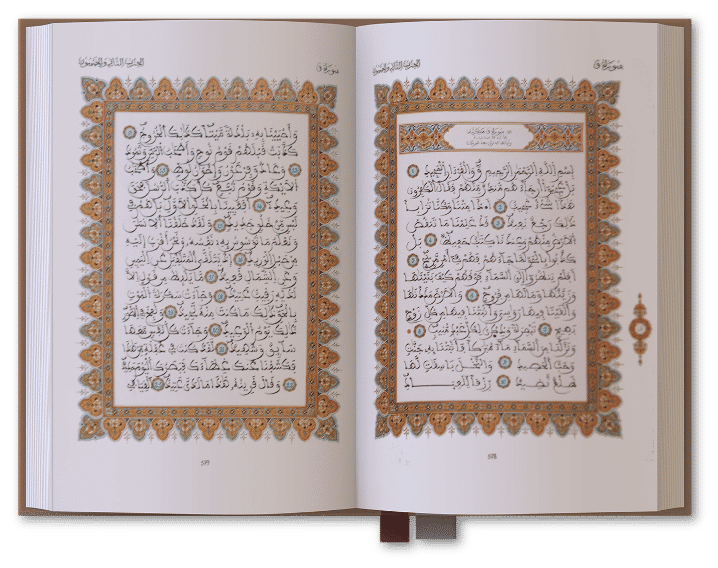 سورة ق
الحزب الثاني والخمسون
بسم الله الرحمن الرحيم ق والقرآن المجيد
بل عجبوا أن جاءهم منذر منهم فقال الكافرون
هذا شيء عجيب أءذا متنا وكنا ترابا
ذلك رجع بعيد قد علمنا ما تنقص
الأرض منهم وعندنا كتاب حفيظ بل
كذبوا بالحق لما جاءهم فهم في أمر مريج
أفلم ينظروا إلى السماء فوقهم كيف بنيناها
وزيناها وما لها من فروج والأرض مددناها
وألقينا فيها رواسي وأنبتنا فيها من كل زوج
بهيج تبصرة وذكرى لكل عبد منيب
ونزلنا من السماء ماء مباركا فأنبتنا به جنات
وحب الحصيد والنخل باسقات لها
طلع نضيد رزقا للعباد
سورة ق
الحزب الثاني والخمسون
وأحيينا به بلدة ميتا كذلك الخروج
كذبت قبلهم قوم نوح وأصحاب الرس وثمود
وعاد وفرعون وإخوان لوط وأصحاب
الأيكة وقوم تبع كل كذب الرسل فحق
وعيد أفعيينا بالخلق الأول بل هم في
لبس من خلق جديد ولقد خلقنا الإنسان
ونعلم ما توسوس به نفسه ونحن أقرب إليه
من حبل الوريد إذ يتلقى المتلقيان عن اليمين
وعن الشمال قعيد ما يلفظ من قول إلا
لديه رقيب عتيد وجاءت سكرة الموت
بالحق ذلك ما كنت منه تحيد ونفخ في الصور
ذلك يوم الوعيد وجاءت كل نفس معها
سائق وشهيد لقد كنت في غفلة من هذا
فكشفنا عنك غطاءك فبصرك اليوم حديد
وقال قرينه هذا ما لدي عتيد ألقيا في